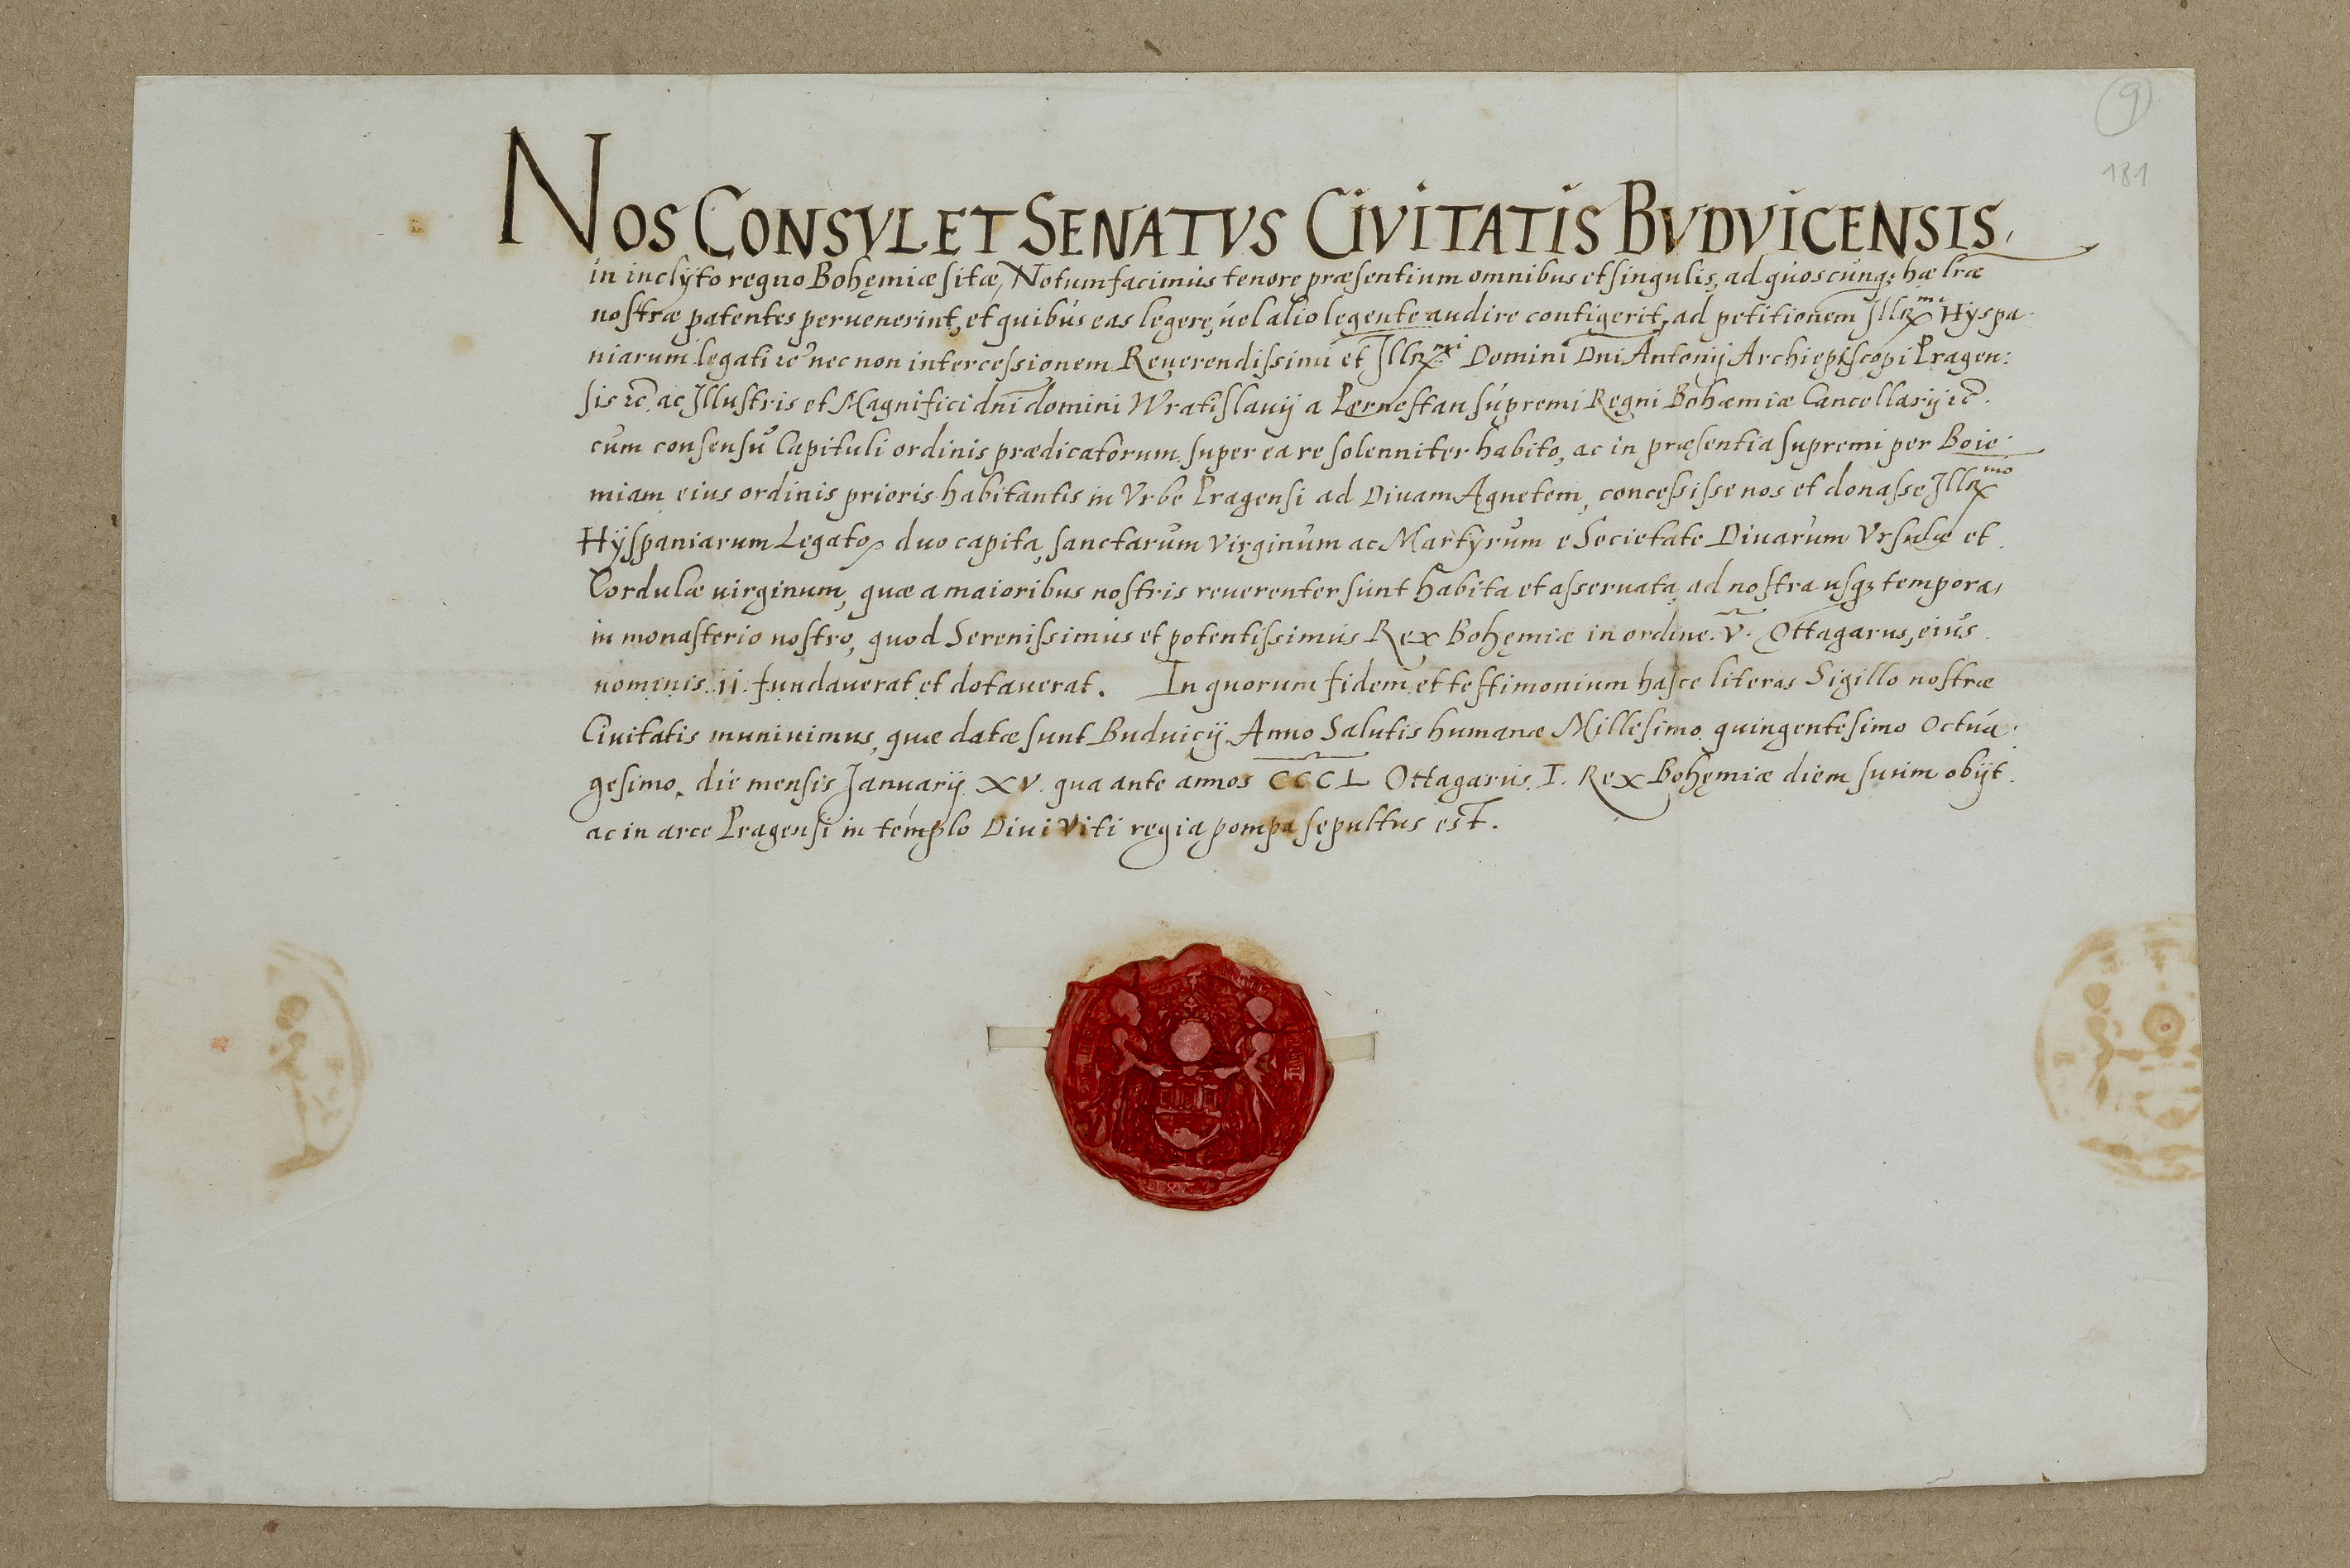 9
181
NOS CONSVL ET SENATVS CIVITATIS BVDVICENSIS,
in inclyto regno Bohęmiæ sitæ, Notum facimus tenore præsentium omnibus et singulis, ad quoscunq; hæ lræ
nostræ patentes peruenerint, et quibus eas legere, uel alio legente audire contigerit, ad petitionem Illr̃mi Hyspa-
niarum legati ꝛc̃ nec non intercessionem Reuerendissimi et Illr̃mi Domini Dni Antonij Archiepiscopi Pragen:
sis ꝛc̃. ac Illustris et Magnifici dnĩ domini Wratislauij a Pernestan supremi Regni Bohæmiæ Cancellarij ꝛc̃.
cum consensu Capituli ordinis prædicatorum super ea re solenniter habito, ac in præsentia supremi per Boie-
miam eius ordinis prioris habitantis in Vrbe Pragensi ad Diuam Agnetem, concessisse nos et donasse Illr̃mo
Hyspaniarum Legato, duo capita, sanctarum Virginum ac Martyrum e Societate Diuarum Vrsulæ et
Cordulæ uirginum, quæ a maioribus nostris reuerenter sunt habita et asseruata, ad nostra usqꝫ tempora,
in monasterio nostro, quod Serenissimus et potentissimus Rex Bohęmiæ in ordine. V. Ottagarus, eius
nominis. ii. fundauerat et dotauerat. In quorum fidem et testimonium hasce literas Sigillo nostræ
Ciuitatis muniuimus, quæ datæ sunt Buduicij Anno Salutis humanæ Millesimo, quingentesimo Octua-
gesimo, die mensis Januarij. XV. qua ante annos CCCL Ottagarus. I. Rex Bohęmiæ diem suum obijt.
ac in arce Pragensi in templo Diui Viti regia pompa sepultus est.